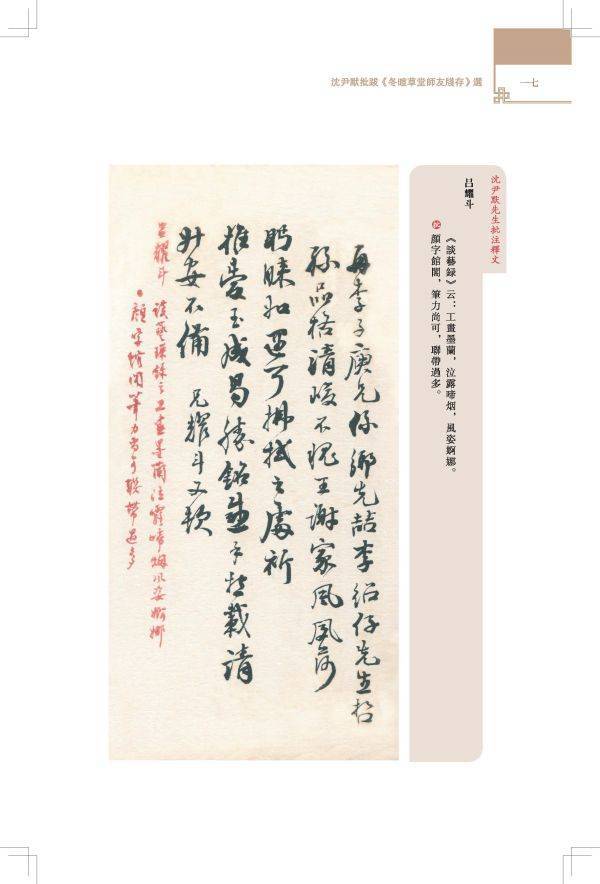 沈尹默批跋《冬暄草堂師友牋存》選
一七
沈尹默先生批注釋文
呂耀斗
《談藝録》云：工畫墨蘭，泣露啼烟，風姿婀娜。
批 顔字館閣，筆力尚可，聯帶過多。
再李子庚兄係鄉先喆李紹仔先生哲
孫品格清峻不愧王謝家風夙荷
眄睞如可拂拭之處祈
推愛玉成曷勝銘感手載請
升安不備 兄耀斗又頓
呂耀斗 談藝録云工畫墨蘭泣露啼烟風姿婀娜
顔字館閣筆力尚可聯帶過多